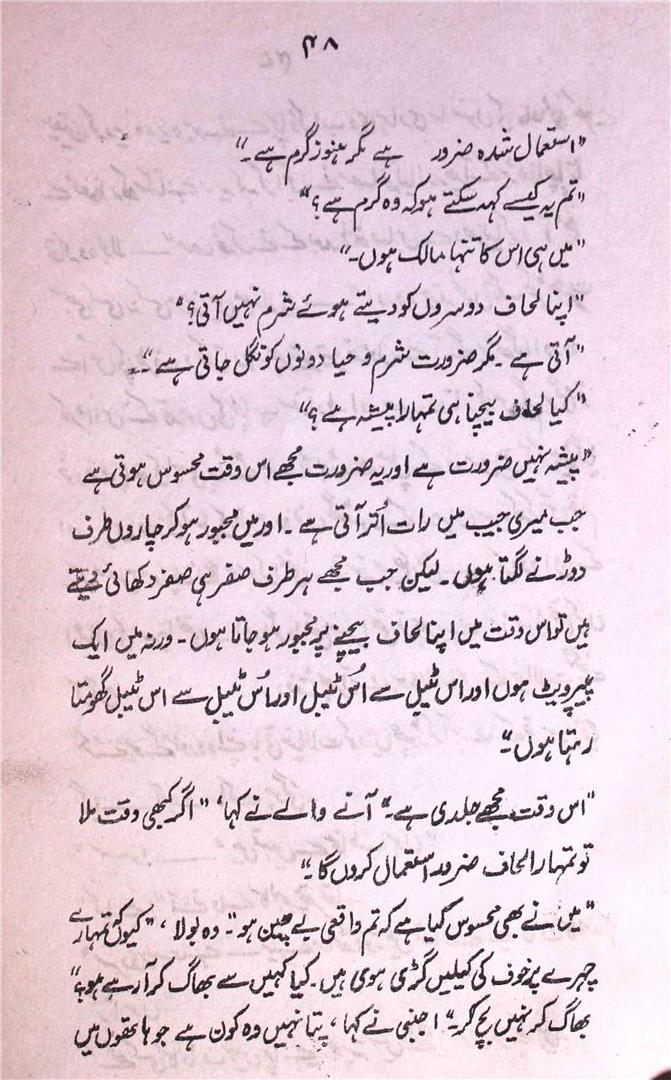 ۴۸
"استعمال شدہ ضرور ہے مگر ہنوز گرم ہے۔"
"تم یہ کیسے کہہ سکتے ہو کہ وہ گرم ہے؟"
"میں ہی اس کا تنہا مالک ہوں۔"
"اپنا لحاف دوسروں کو دیتے ہوئے شرم نہیں آتی؟"
"آتی ہے۔ مگر ضرورت شرم و حیا دونوں کو نگل جاتی ہے"۔
"کیا لحاف بیچنا ہی تمہارا پیشہ ہے؟"
"پیشہ نہیں ضرورت ہے اور یہ ضرورت مجھے اس وقت محسوس ہوتی ہے
جب میری جیب میں رات اُتر آتی ہے۔ اور میں مجبور ہو کر چاروں طرف
دوڑنے لگتا ہوں۔ لیکن جب مجھے ہر طرف صفر ہی صفر دکھائی دیتے
ہیں تو اس وقت میں اپنا لحاف بیچنے پر مجبور ہو جاتا ہوں۔ ورنہ میں ایک
پیپر ویٹ ہوں اور اس ٹیبل سے اُس ٹیبل اور اُس ٹیبل سے اس ٹیبل گھومتا
رہتا ہوں۔"
"اس وقت مجھے جلدی ہے۔" آنے والے نے کہا، "اگر کبھی وقت ملا
تو تمہارا لحاف ضرور استعمال کروں گا۔"
"میں نے بھی محسوس کیا ہے کہ تم واقعی بے چین ہو"۔ وہ بولا، "کیوں کہ تمہارے
چہرے پر خوف کی کیلیں گڑی ہوی ہیں۔ کیا کہیں سے بھاگ کر آ رہے ہو؟"
بھاگ کر نہیں بچ کر۔" اجنبی نے کہا، پتا نہیں وہ کون ہے جو ہاتھوں میں